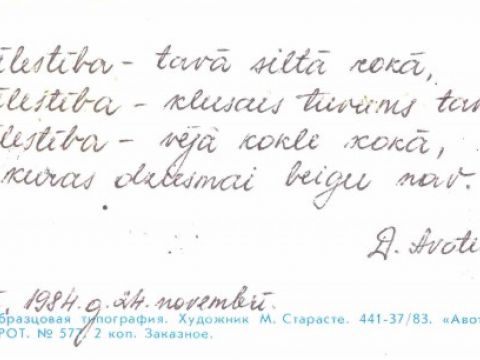 īlestība - tavā siltā rokā,
īlestība - klusais tuvums tav
lestība - vējā kokle kokā,
kuras dziesmai beigu nav.
D. Avoti
1984. g. 24. novembrī.
бразцовая типография. Художник М. Старасте. 441-37/83. «Авот
РОТ. № 577. 2 коп. Заказное.